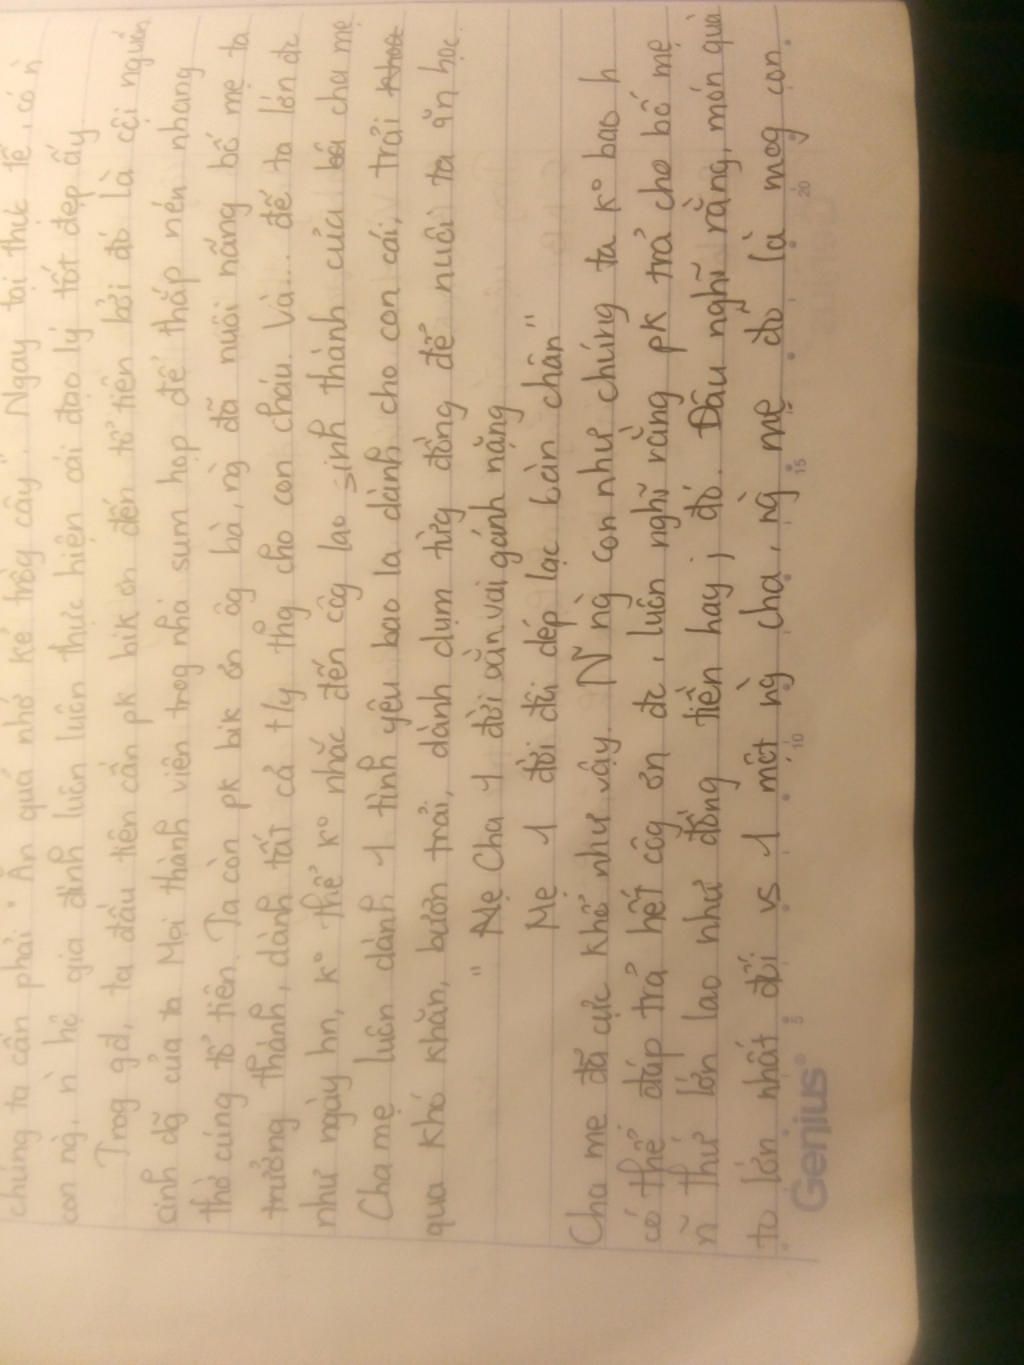 chúng ta cần phải " Ăn quả nhớ kẻ trồg cây". Ngay tại thực tế, có n
con ng, n hộ gia đình luôn luôn thực hiện cái đạo lý tốt đẹp ấy
Trog gđ, ta đầu tiên cần pk bik ơn đến tổ tiên bởi đó là cội nguồn
sinh dg của ta. Mọi thành viên trog nhà sum họp để thắp nén nhang
thờ cúng tổ tiên. Ta còn pk bik ơn ôg bà, ng đã nuôi nấng bố mẹ ta
trưởng thành, dành tất cả t/y thg cho con cháu. Và... để ta lớn đc
như ngày hn, k° thể k° nhắc đến côg lao sinh thành của cha mẹ
Cha mẹ luôn dành 1 tình yêu bao la dành cho con cái, trải
qua khó khăn, bươn trải, dành dụm từg đồng để nuôi ta ăn học.
" Cha 1 đời oằn vai gánh nặng
Mẹ 1 đời đôi dép lạc bàn chân"
Cha mẹ đã cực khổ như vậy. Ng con như chúng ta k° bao h
có thể đáp trả hết côg ơn đc, luôn nghĩ rằng pk trả cho bố mẹ
n thứ lớn lao như đồng tiền hay j đó. Đâu nghĩ rằng, món quà
to lớn nhất đối vs 1 một ng cha, ng mẹ đó là mog con
Genius
5 10 15 20